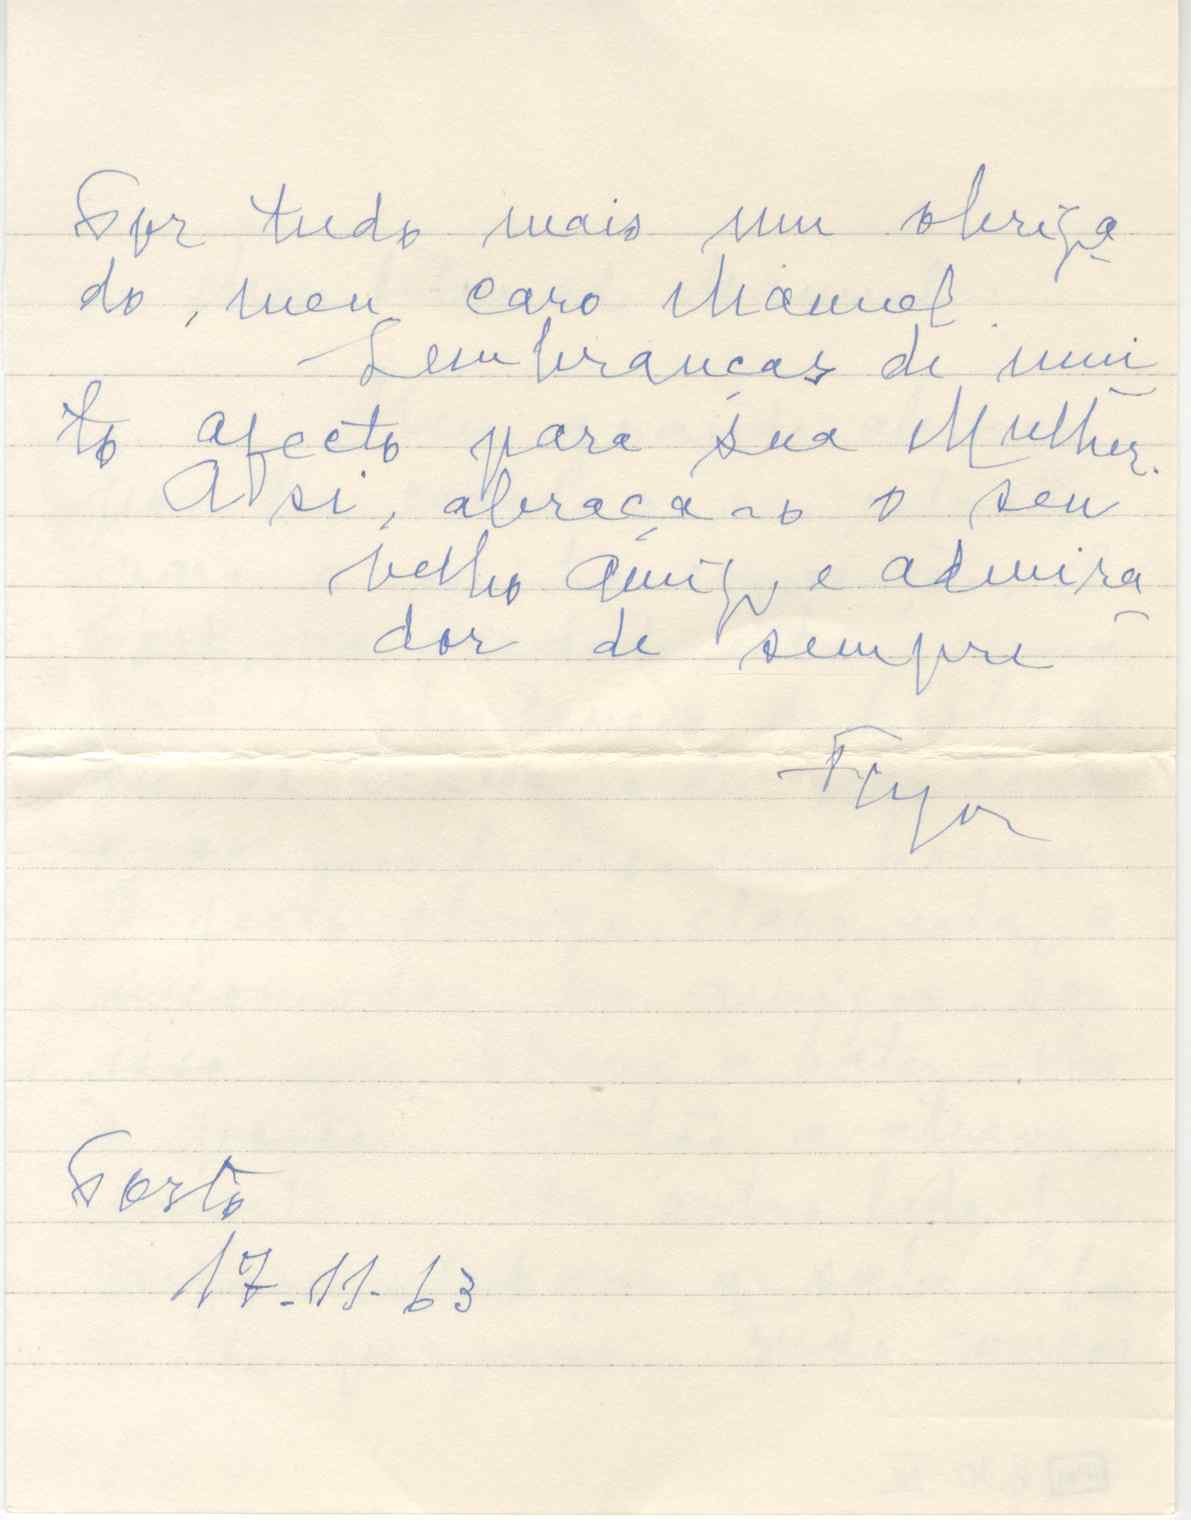 Por tudo mais um obriga
do, meu caro Manuel.
Lembranças de mui
to afecto para sua Mulher.
A si, abraça-o o seu
velho amigo e admira
dor de sempre
Porto
17-11-63